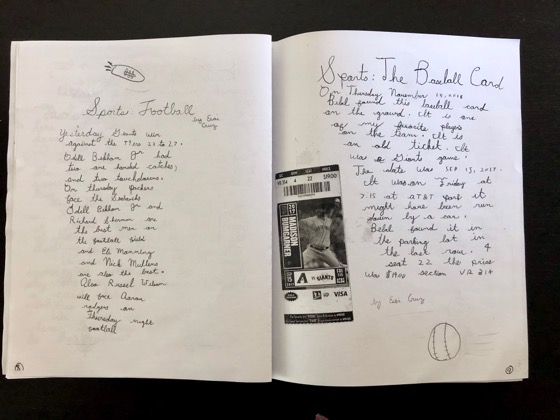 Sports: Football
by Evan
Cruz
Yesterday Giants win
against the 49ers 23 to 27.
Odell Beckham Jr had
two one handed catches,
and two touchdowns.
On thursday packers
face the Seahawks
Odell Beckham Jr and
Richard Sherman are
the best men on
the football field
and Eli Manning
and Nick Mullens
are also the best.
Also Russel Wilson
will face Aaron
rodgers on
Thursday night
football
Sports: The Baseball Card
On Thursday November 15, 2018
Bebel found this baseball card
on the ground. It is one
of my favorite players
on the team. It is
an old ticket. It
was a Giants game.
The date was SEP 15, 2017.
It was on Friday at
7:15 at AT&T park it
might have been run
down by a car.
Bebel found it in
the parking lot in
the last row. 4
seat 22 the price
was $19.00 section VR 314
by Evan Cruz
4
22
$19.00
MADISON
BUMGARNER
A
VS
GIANTS
VISA